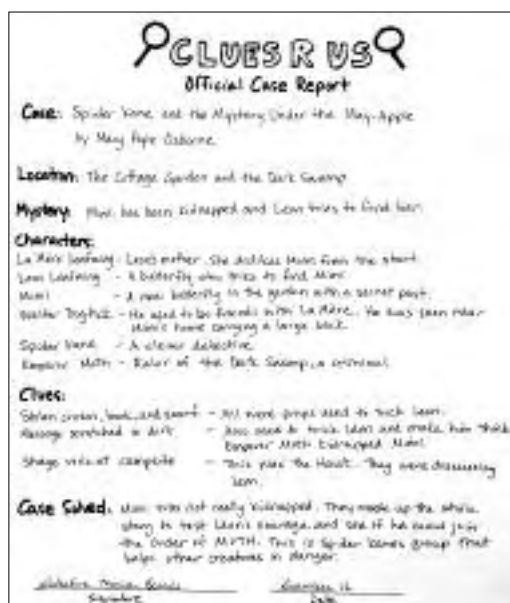 CLUES R US
Official Case Report
Case: Spider Kane and the Mystery Under the May-Apple
by Mary Pope Osborne
Location: The Cottage Garden and the Dark Swamp
Mystery: Mimi has been kidnapped and Leon tries to find her.
Characters:
La Mere Leafwing - Leon's mother. She dislikes Mimi from the start.
Leon Leafwing - A butterfly who tries to find Mimi.
Mimi - A new butterfly in the garden with a secret past.
Walter Dogtick - He used to be friends with La Mere. He was seen near
Mimi's home carrying a large
Spider Kane - A clever detective
Emperor Moth - Ruler of the Dark Swamp, a criminal
Clues:
Stolen crown, book, and scarf - All were props used to trick Leon.
Message scratched in dirt - Also used to trick Leon and make him think
Emperor Moth kidnapped Mimi
Strange voices at campsite - This was the Hawk. They were discussing
Leon.
Case Solved: Mimi was not really kidnapped. They made up the whole
story to test Leon's courage and see if he could join
the Order of MOTH. This is Spider Kane's group that
helps other creatures in danger.
Signature
Date